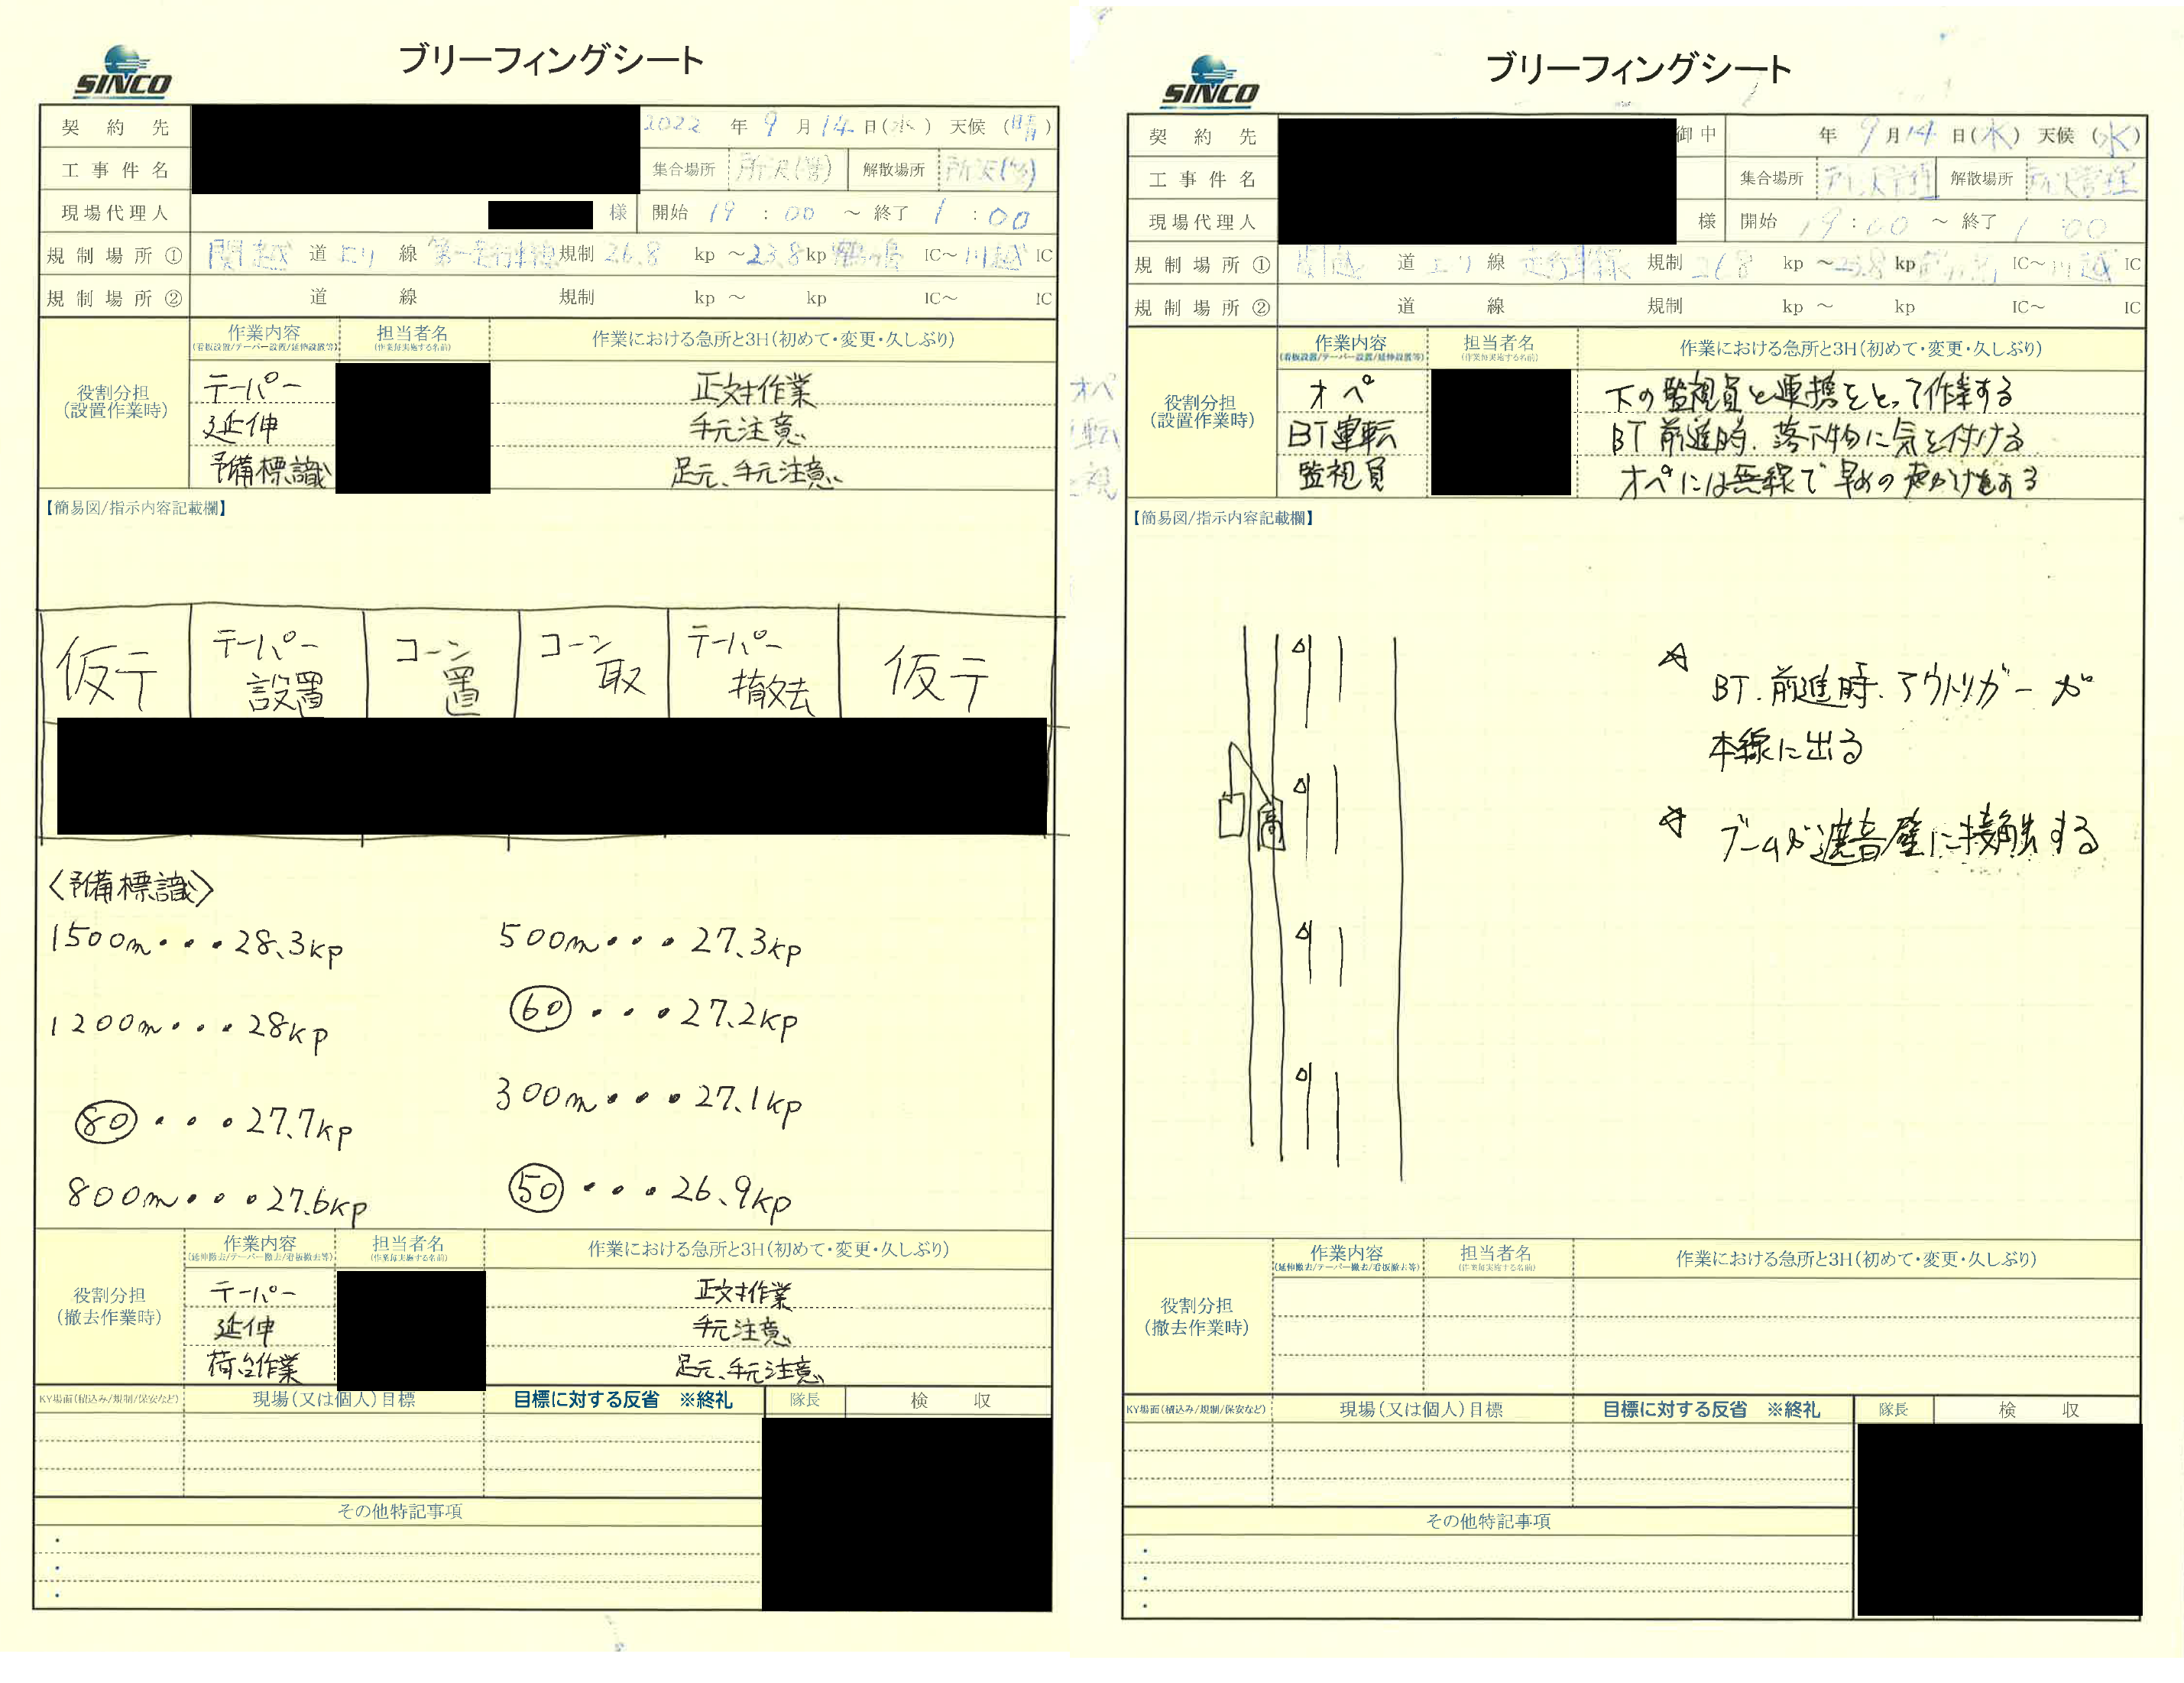 SINCO
ブリーフィングシート
契約先
2022 年 9 月 14 日(水) 天候 (晴)
工事件名
集合場所 所沢(管) 解散場所 所沢(管)
現場代理人 様 開始 19 : 00 ～ 終了 1 : 00
規制場所① 関越 道 上り 線 第一走行車線 規制 26.8 kp ～ 23.8 kp 鶴ヶ島 IC～ 川越 IC
規制場所② 道 線 規制 kp ～ kp IC～ IC
役割分担
(設置作業時)
作業内容 担当者名 作業における急所と3H(初めて・変更・久しぶり)
(看板設置/テーパー設置/延伸設置等) (作業毎実施する名前)
テーパー 正対作業
延伸 手元注意
予備標識 足元、手元注意
【簡易図/指示内容記載欄】
仮テ テーパー設置 コーン置 コーン取 テーパー撤去 仮テ
〈予備標識〉
1500m・・・28.3kp 500m・・・27.3kp
1200m・・・28kp 60・・・27.2kp
80・・・27.7kp 300m・・・27.1kp
800m・・・27.6kp 50・・・26.9kp
役割分担
(撤去作業時)
作業内容 担当者名 作業における急所と3H(初めて・変更・久しぶり)
(延伸撤去/テーパー撤去/看板撤去等) (作業毎実施する名前)
テーパー 正対作業
延伸 手元注意
荷台作業 足元、手元注意
KY場面(積込み/規制/保安など) 現場(又は個人)目標 目標に対する反省 ※終礼 隊長 検収
その他特記事項
・
・
・
SINCO
ブリーフィングシート
契約先 御中
年 9 月 14 日(水) 天候 (水)
工事件名
集合場所 所沢管理 解散場所 所沢管理
現場代理人 様 開始 19 : 00 ～ 終了 1 : 00
規制場所① 関越 道 上り 線 走行車線 規制 26.8 kp ～ 23.8 kp 鶴ヶ島 IC～ 川越 IC
規制場所② 道 線 規制 kp ～ kp IC～ IC
役割分担
(設置作業時)
作業内容 担当者名 作業における急所と3H(初めて・変更・久しぶり)
(看板設置/テーパー設置/延伸設置等) (作業毎実施する名前)
オペ 下の監視員と連携をとって作業する
BT運転 BT前進時、落下物に気を付ける
監視員 オペには無線で早めの声かけをする
【簡易図/指示内容記載欄】
高
☆ BT.前進時.アウトリガーが
本線に出る
☆ ブームが遮音壁に接触する
役割分担
(撤去作業時)
作業内容 担当者名 作業における急所と3H(初めて・変更・久しぶり)
(延伸撤去/テーパー撤去/看板撤去等) (作業毎実施する名前)
KY場面(積込み/規制/保安など) 現場(又は個人)目標 目標に対する反省 ※終礼 隊長 検収
その他特記事項
・
・
・